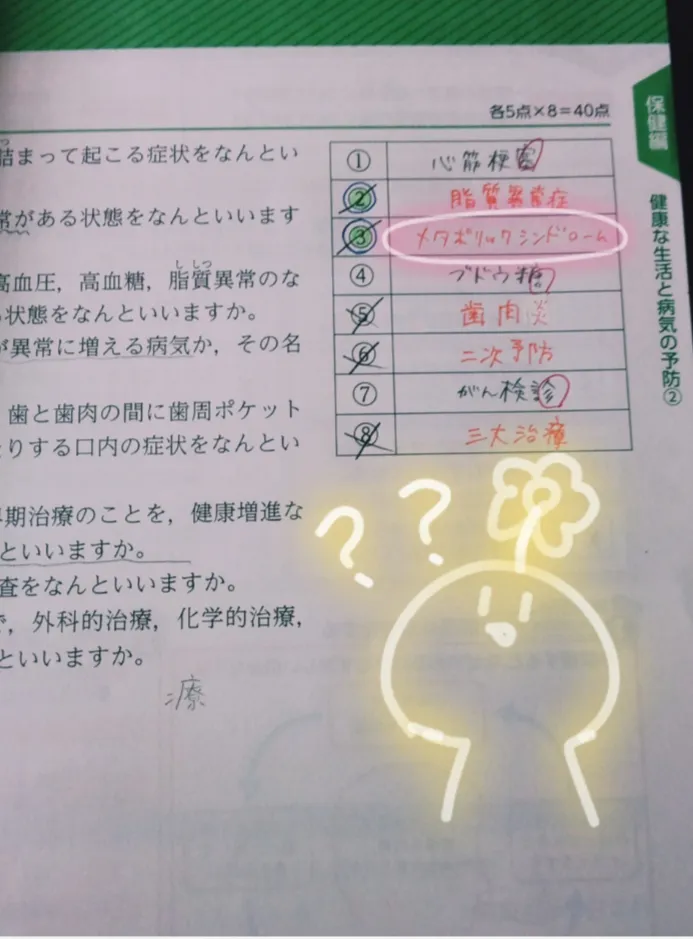 各5点×8=40点
保健編
健康な生活と病気の予防②
詰まって起こる症状をなんとい
常がある状態をなんといいます
高血圧，高血糖，脂質異常のな
ししつ
る状態をなんといいますか。
が異常に増える病気か，その名
歯と歯肉の間に歯周ポケット
たりする口内の症状をなんとい
早期治療のことを，健康増進な
といいますか。
査をなんといいますか。
で，外科的治療，化学的治療，
といいますか。
療
① 心筋梗塞
② 脂質異常症
③ メタボリックシンドローム
④ ブドウ糖
⑤ 歯肉炎
⑥ 二次予防
⑦ がん検診
⑧ 三大治療
? ?